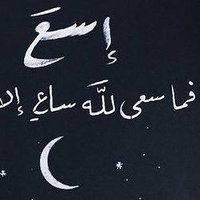 إسعَ
فما سعى للَّه ساعٍ إلا